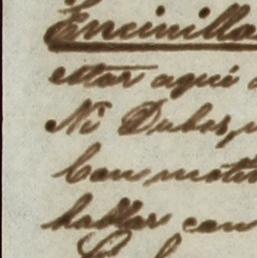 Encinilla
estar aquí
Ni Dubos,
Con moti
hablar con